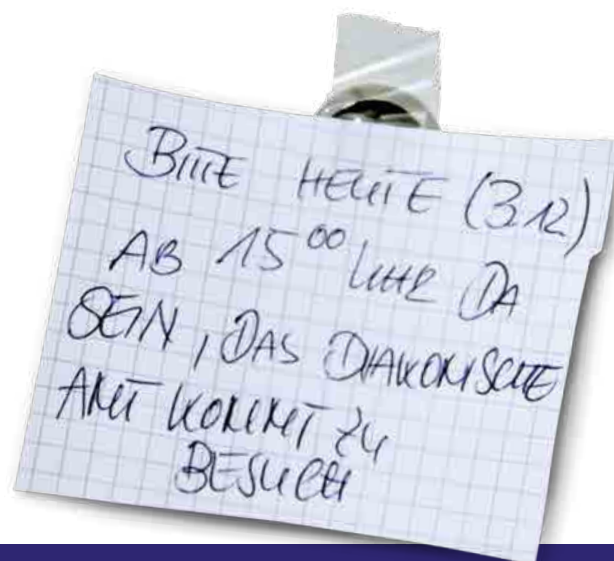 BITTE HEUTE (3.12)
AB 15⁰⁰ UHR DA
SEIN, DAS DIAKONISCHE
AMT KOMMT ZU
BESUCH